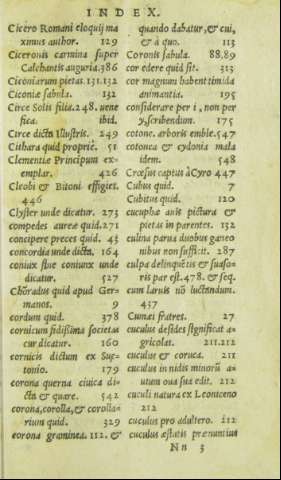 INDEX.
Cicero Romani eloquij ma
ximus author. 129
Ciceronis carmina super
Calchantis auguria. 386
Ciconiarum pietas. 131.132
Ciconiæ fabula. 132
Circe Solis filia. 248. uene
fica. ibid.
Circe dicta Illustris. 249
Cithara quid propriè. 51
Clementiæ Principum ex-
emplar. 426
Cleobi & Bitoni effigies.
446
Clyster unde dicatur. 273
compedes aureæ quid. 271
concipere preces quid. 43
concordia unde dicta, 164
coniux siue coniunx unde
dicatur. 527
Chõradus quid apud Ger-
manos. 9
cordum quid. 378
cornicum fidissima societas
cur dicatur. 160
cornicis dictum ex Sue-
tonio. 179
corona querna ciuica di-
cta & quare. 542
corona, corolla, & corolla-
rium quid. 329
corona graminea. 112. &
quando dabatur, & cui,
& à quo. 113
Coronis fabula. 88,89
cor edere quid sit. 315
cor magnum habent timida
animantia. 195
considerare per i, non per
y, scribendum. 175
cotone. arboris emble. 547
cotonea & cydonia mala
idem. 548
Crœsus captus à Cyro 447
Cubus quid. 7
Cubitus quid. 120
cucupha auis pictura &
pietas in parentes. 132
culina parua duobus ganeo
nibus non sufficit. 287
culpa delinquẽtis & suaso
ris par est. 478. & seq.
cum laruis nõ luctandum.
457
Cumæi fratres. 27
cuculus desides significat a-
gricolas. 211.212
cuculus & coruca. 211
cuculus in nidis minorũ a-
uium oua sua edit. 212
cuculi natura ex Leoniceno
212
cuculus pro adultero. 212
cuculus æstatis prænuntius
Nn 3